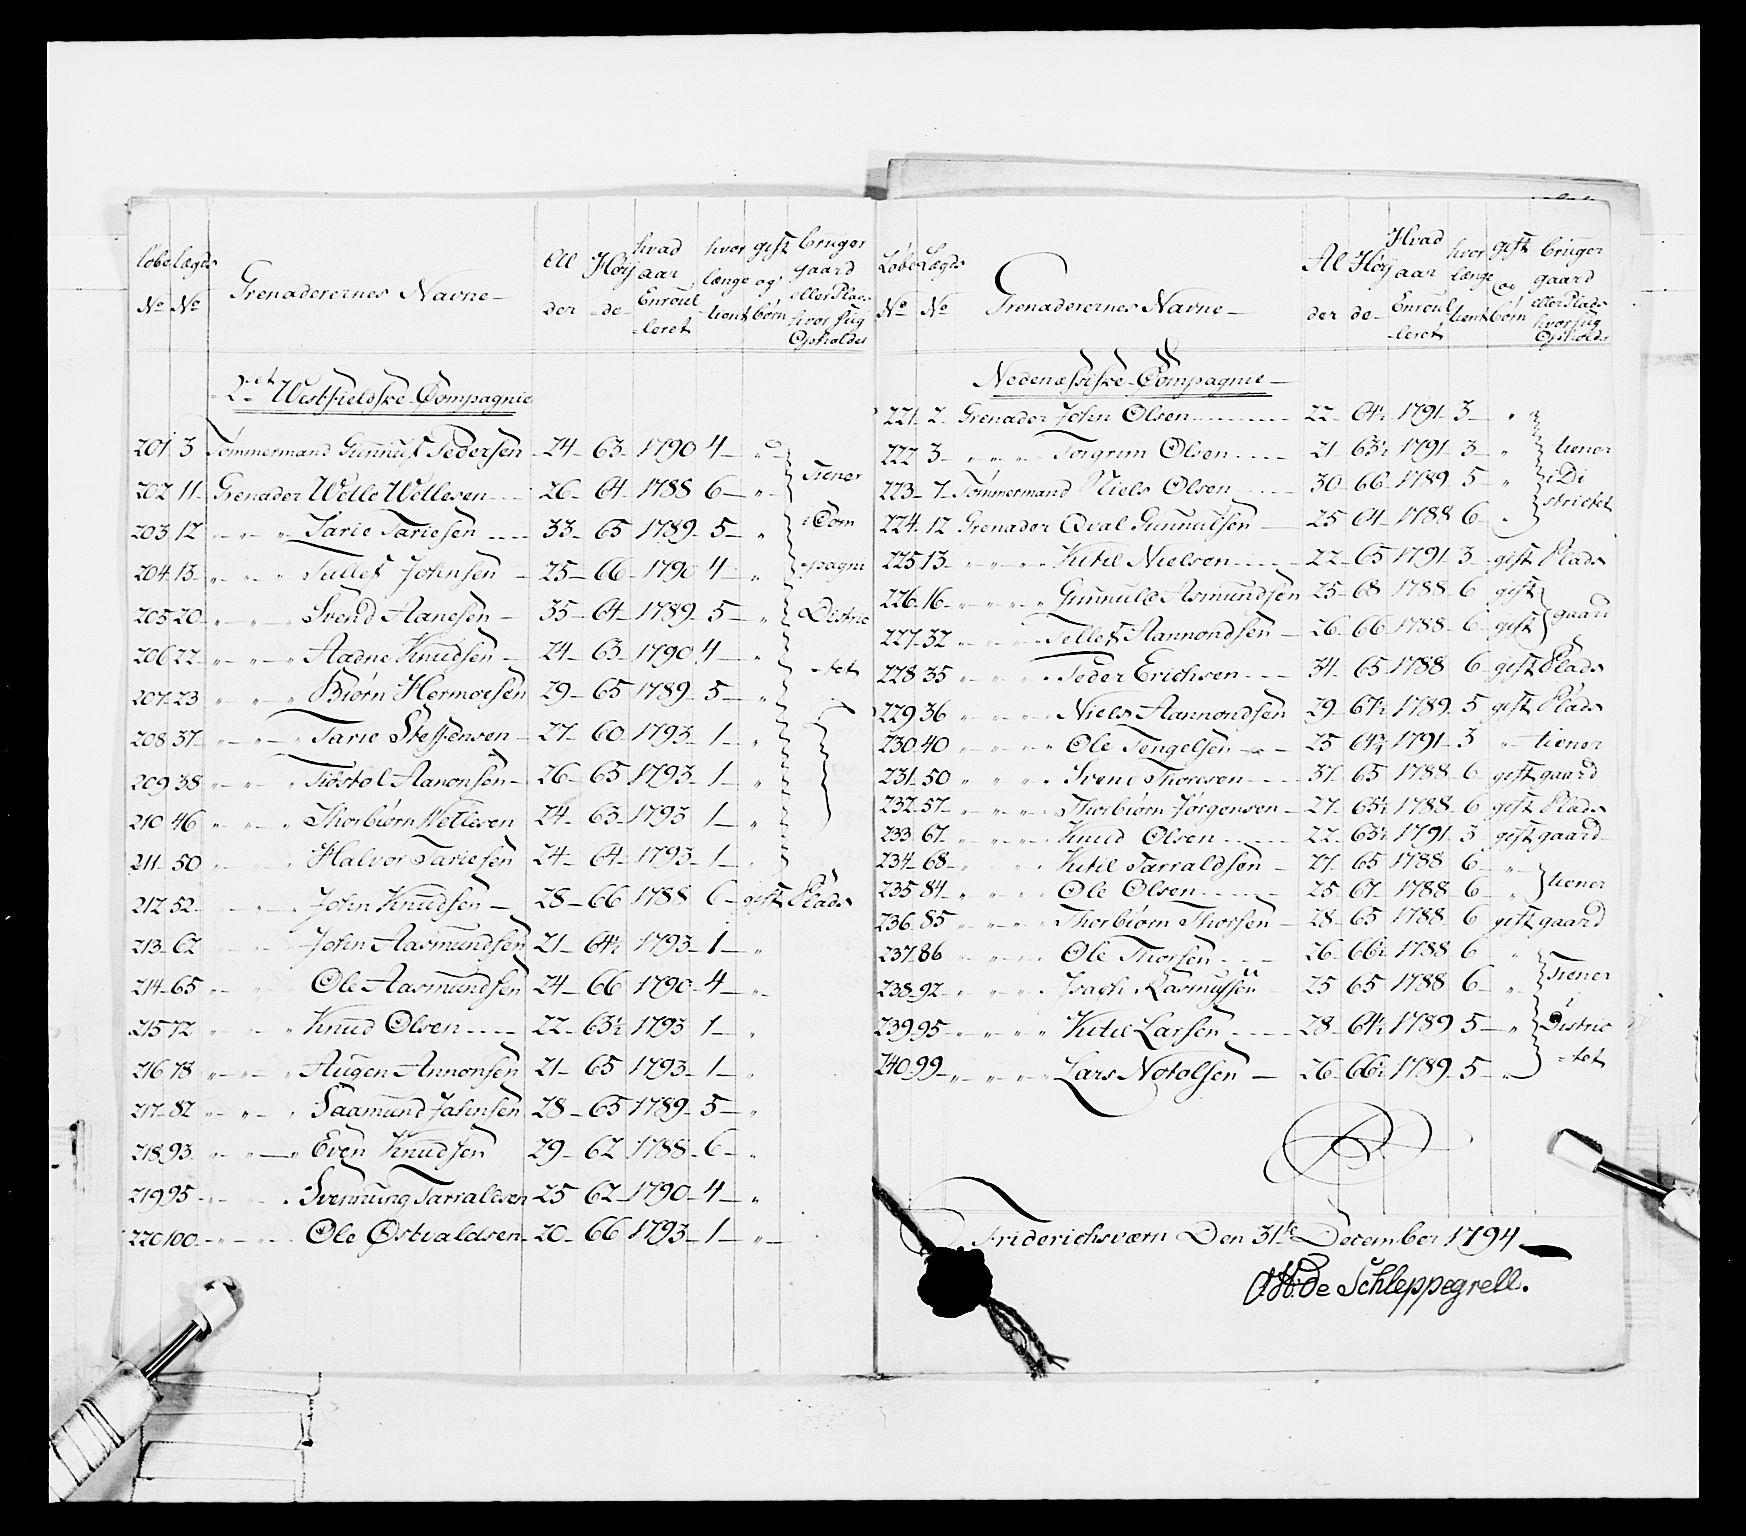 løbe No
lægds No
Grenaderernes Navne
Allder
Høyde
hvad aar Enroulleret
hvor længe tient
gift og børn
bruger gaard eller Plads hvor sig Opholder
2det Westfieldske Compagnie
201 3 Tømmermand Gunnulf Pedersen 24 63 1790 4 "
202 11 Grenader Wetle Wetlesen 26 64 1788 6 "
203 12 " " " Tarie Tariesen 33 65 1789 5 "
204 13 " " " Tellef Johnsen 25 66 1790 4 "
205 20 " " " Svend Aanesen 35 64 1789 5 "
206 22 " " " Aadne Knudsen 24 63 1790 4 "
207 23 " " " Biørn Hermoesen 29 65 1789 5 "
208 37 " " " Tarie Steffensen 27 60 1793 1 "
209 38 " " " Tiøstol Aanonsen 26 65 1793 1 "
210 46 " " " Thorbiørn Wetlesen 24 63 1793 1 "
211 50 " " " Halvor Tariesen 24 64 1793 1 "
tiener i Compagnie Districtet
212 52 " " " John Knudsen 28 66 1788 6 gift Plads
213 62 " " John Aasmundsen 21 64½ 1793 1 "
214 65 " " " Ole Aasmundsen 24 66 1790 4 "
215 72 " " " Knud Olsen 22 63½ 1793 1 "
216 78 " " " Augen Annonsen 21 65 1793 1 "
217 82 " " " Saamund Jahnsen 28 65 1789 5 "
218 93 " " " Even Knudsen 29 62 1788 6 "
219 95 " " " Svennung Tarraldsen 25 62 1790 4 "
220 100 " " " Ole Østvaldsen 20 66 1793 1 "
Løbe No
Lægds No
Grenaderernes Navne
Alder
Høyde
Hvad aar Enroulleret
hvor længe tient
gift og børn
bruger gaard eller Plads hvor sig Opholder
Nedenæssiske Compagnie
221 2 Grenader John Olsen 22 64½ 1791 3 " "
222 3 " " " Torgrim Olsen 21 63½ 1791 3 "
223 7 Tømmermand Niels Olsen 30 66 1789 5 "
224 12 Grenader Qval Gunnulsen 25 64 1788 6 "
tiener i Districtet
225 13 " " " Kitil Nielsen 22 65 1791 3 gift Plads
226 16 " " " Gunnuld Asmundsen 25 68 1788 6 gift
227 32 " " " Tellef Aannondsen 26 66 1788 6 gift
gaard
228 35 " " " Peder Erichsen 34 65 1788 6 gift Plads
229 36 " " " Niels Aannondsen 29 67½ 1789 5 gift Plads
230 40 " " " Ole Tengelsen 25 64¾ 1791 3 " tiener
231 50 " " " Svend Thoresen 37 65 1788 6 gift gaard
232 57 " " " Thorbiørn Jørgensen 27 65½ 1788 6 gift Plads
233 67 " " " Knud Olsen 22 63½ 1791 3 gift gaard
234 68 " " " Kitil Tarraldsen 27 65 1788 6 "
235 84 " " " Ole Olsen 25 67 1788 6 "
tiener
236 85 " " " Thorbiørn Thorsen 28 65 1788 6 gift gaard
237 86 " " " Ole Thorsen 26 66½ 1788 6 "
238 92 " " " Joseph Rasmussen 25 65 1788 6 "
239 95 " " " Kitil Larsen 28 64½ 1789 5 "
240 99 " " " Lars Notolsen 26 66½ 1789 5 "
tiener i Districtet
Friderichsværn Den 31te December 1794
O.H: de Schleppegrell.